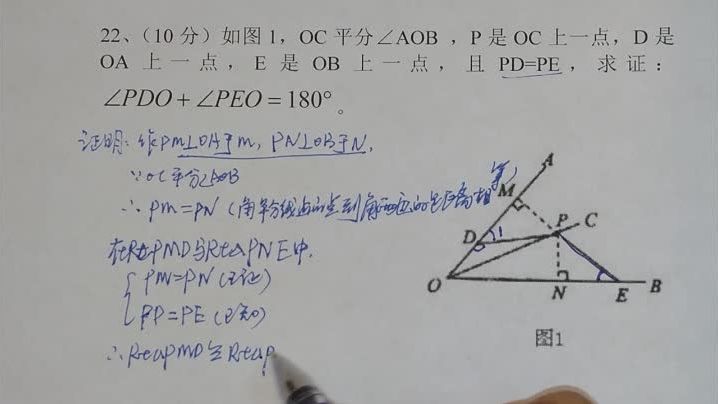 22、（10 分）如图 1，OC 平分∠AOB ，P 是 OC 上一点，D 是
OA 上一点，E 是 OB 上一点，且 PD=PE，求证：
∠PDO+∠PEO=180°。
证明：作PM⊥OA于M，PN⊥OB于N，
∵OC平分∠AOB
∴PM=PN（角平分线上的点到角两边的距离相等）
在Rt△PMD与Rt△PNE中，
PM=PN（已证）
PD=PE（已知）
∴Rt△PMD≌Rt△P
A
M
P
C
D
1
O
N
E
B
图1